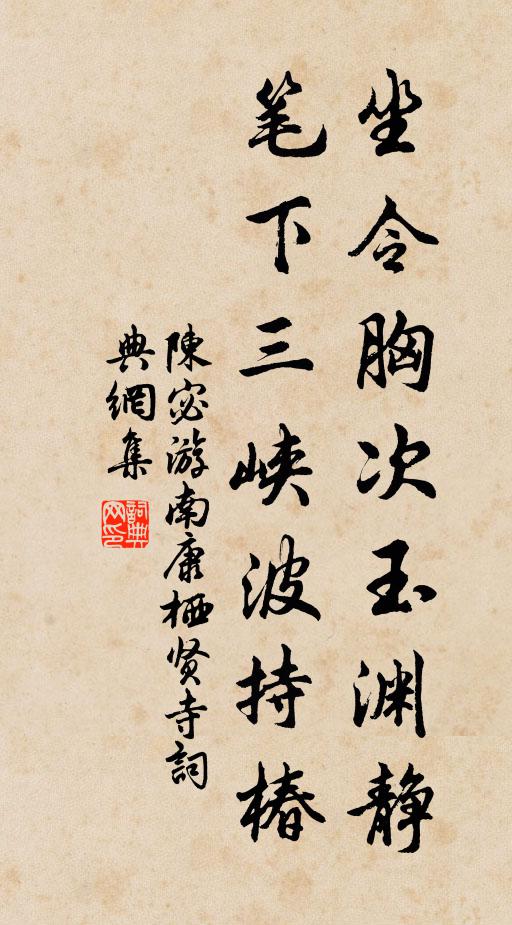 坐令胸次玉渊静
笔下三峡波持椿
陳宓游南康栖贤寺詞
典網集
詞典网印